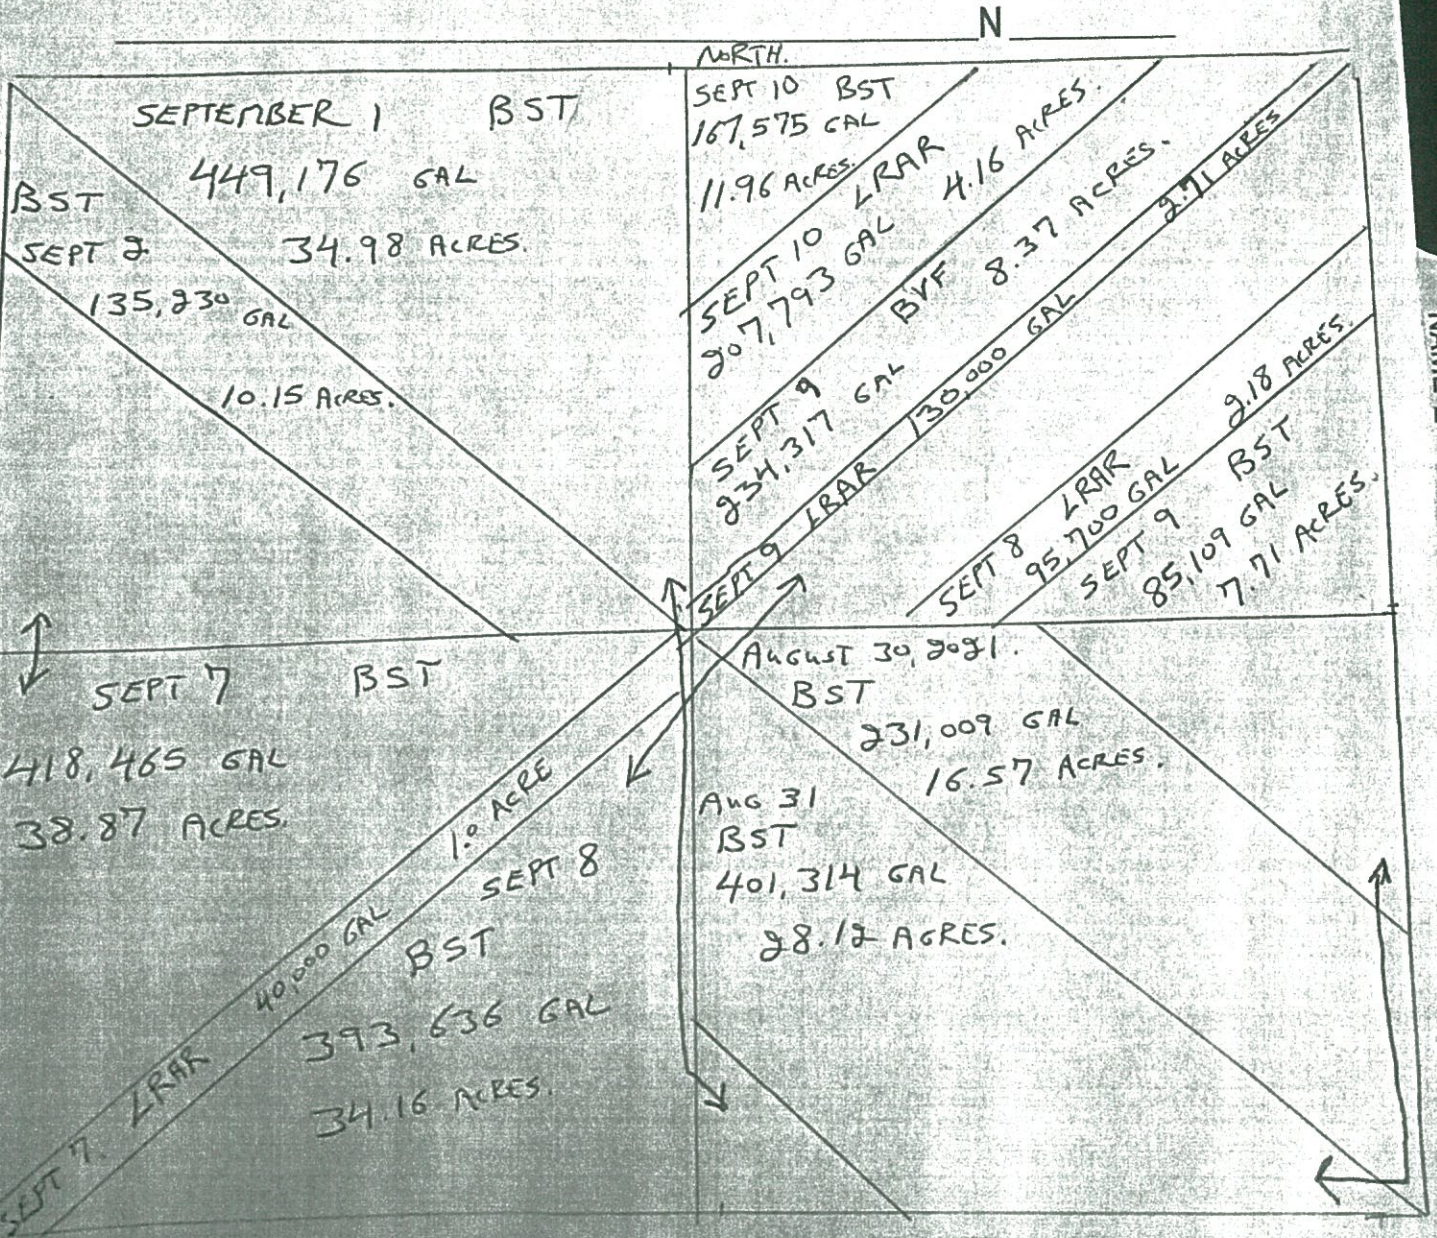 N
NORTH.
SEPTEMBER 1 BST
449,176 GAL
34.98 ACRES.
BST
SEPT 2
135,230 GAL
10.15 ACRES.
SEPT 10 BST
167,575 GAL
11.96 ACRES.
SEPT 10 LRAR
207,793 GAL 4.16 ACRES.
SEPT 9 BVF 8.37 ACRES.
234,317 GAL
SEPT 9 LRAR 130,000 GAL 2.71 ACRES
SEPT 8 LRAR
95,700 GAL 2.18 ACRES.
SEPT 9 BST
85,109 GAL
7.71 ACRES.
SEPT 7 BST
418,465 GAL
38.87 ACRES.
SEPT 7. LRAR 40,000 GAL 1.0 ACRE
SEPT 8
BST
393,636 GAL
34.16 ACRES.
AUGUST 30, 2021.
BST
231,009 GAL
16.57 ACRES.
AUG 31
BST
401,314 GAL
28.12 ACRES.